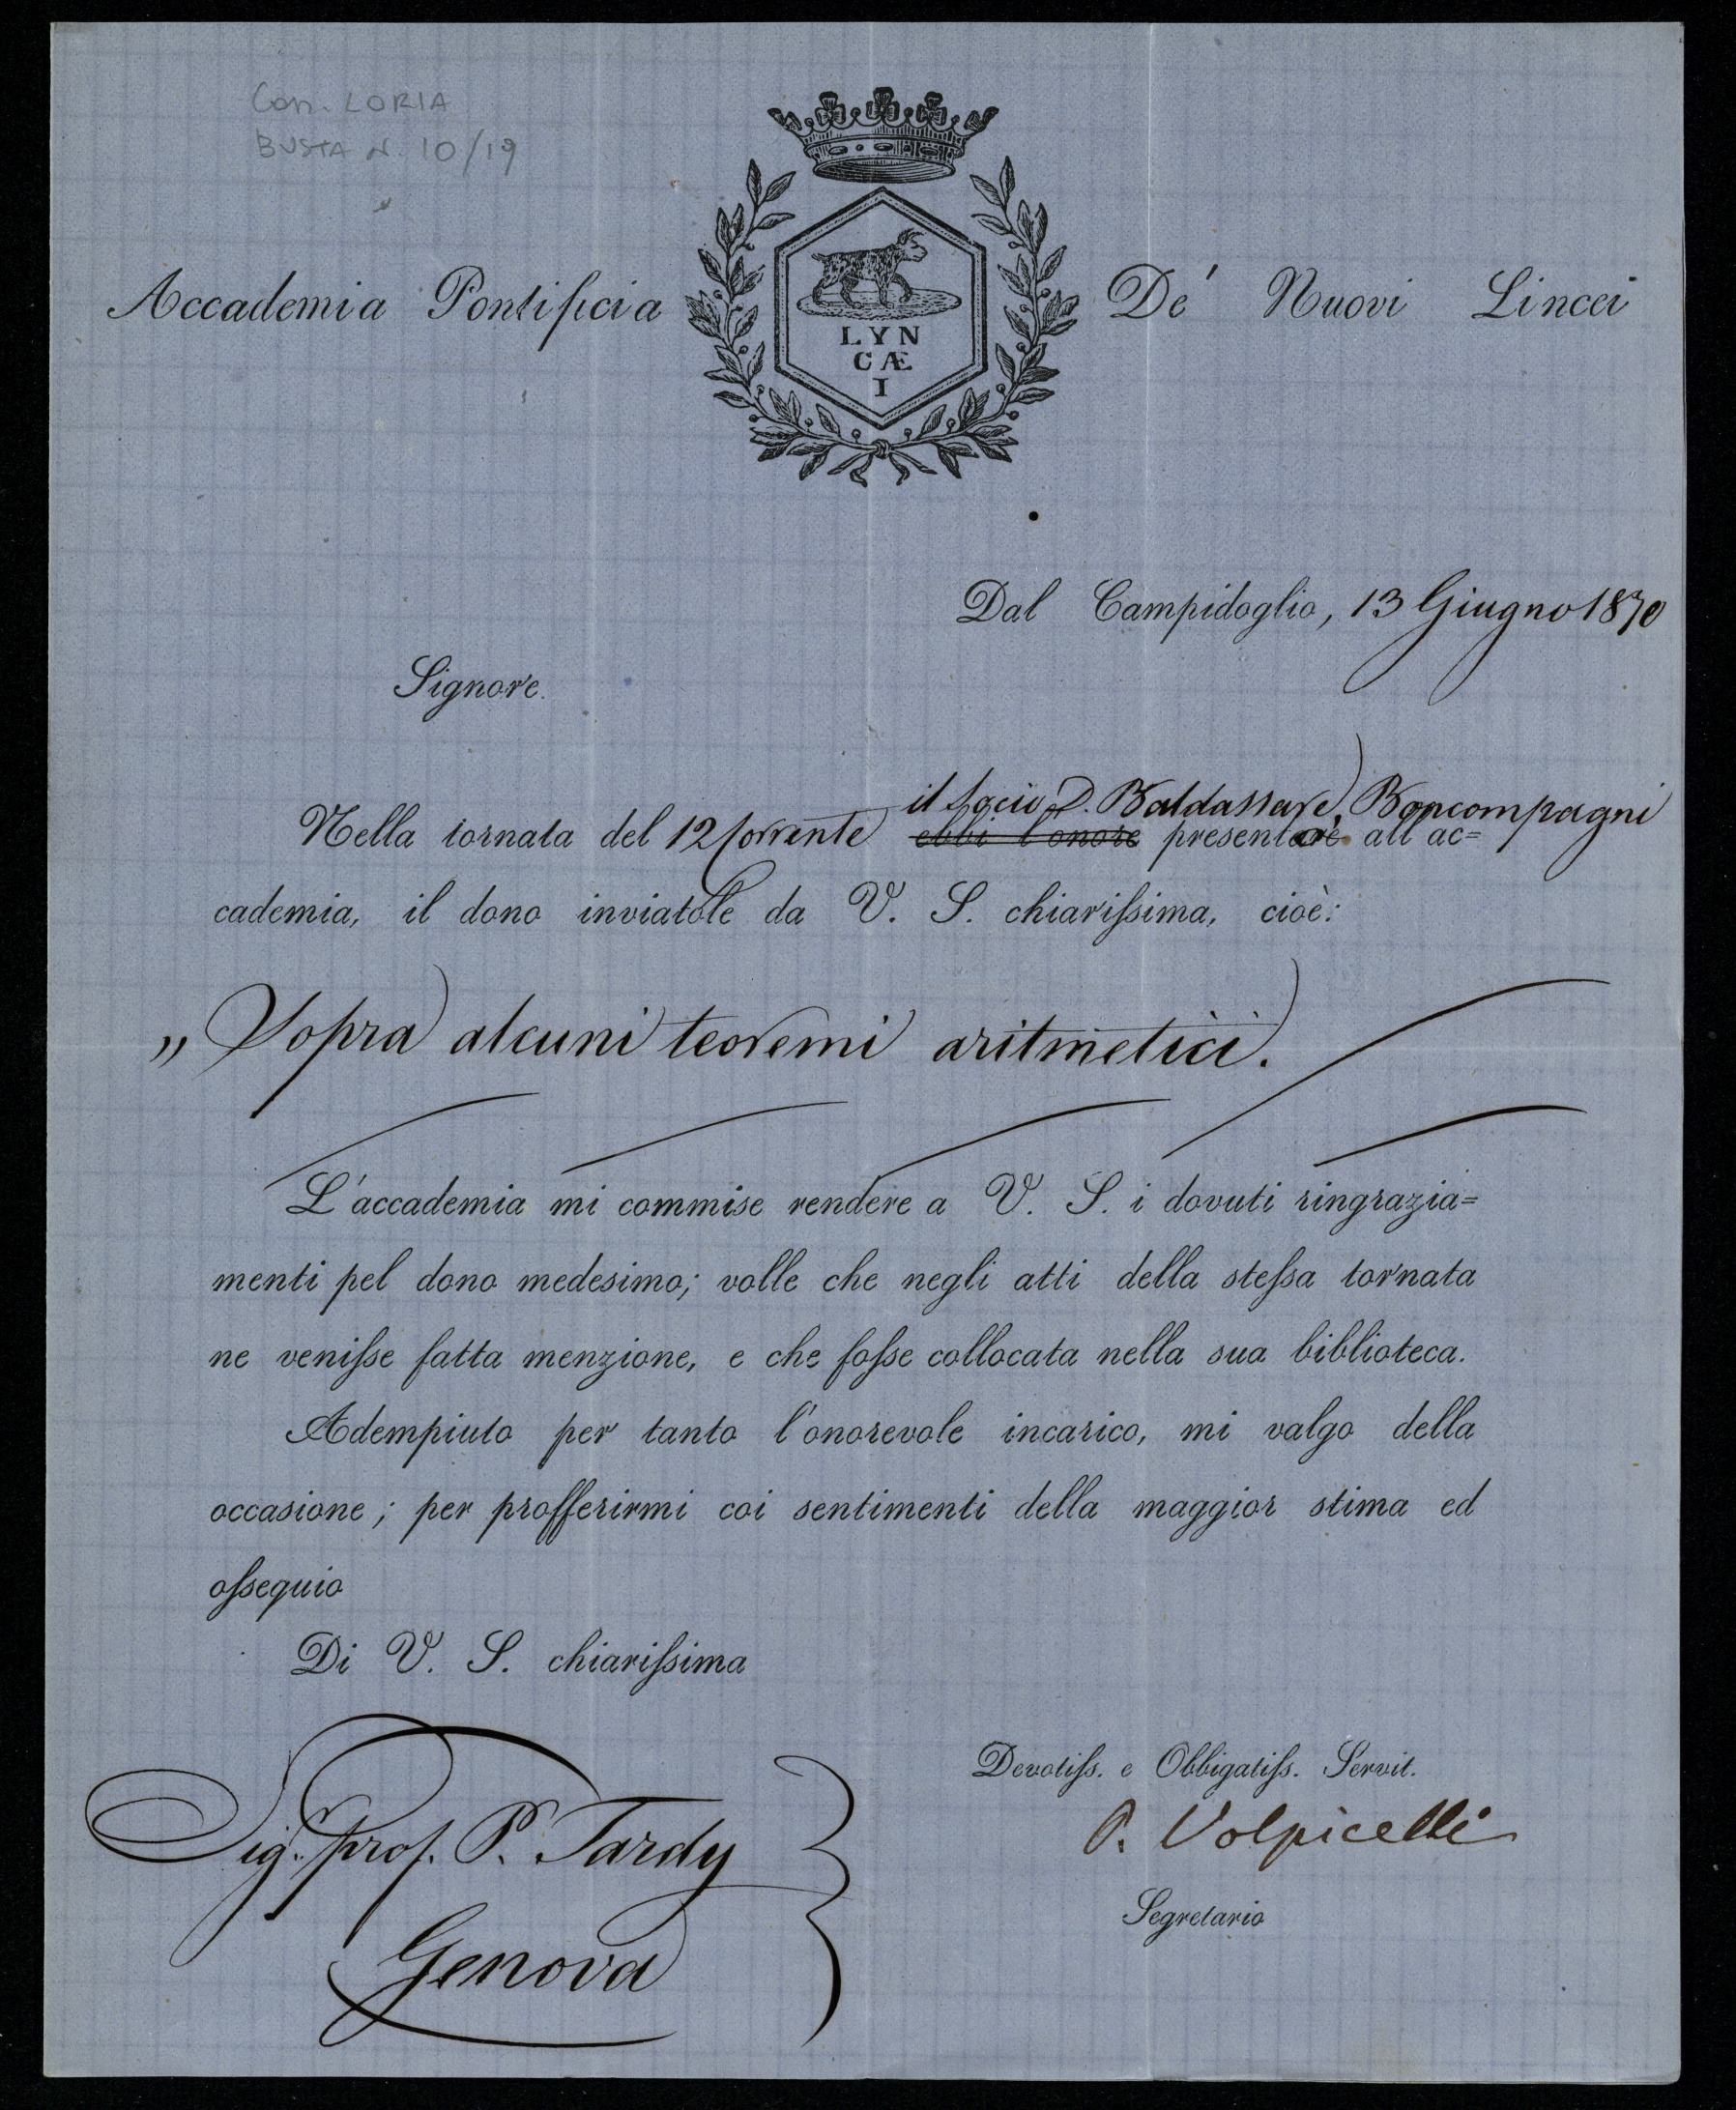 Con. LORIA
BUSTA N. 10/19
Accademia Pontificia De' Nuovi Lincei
LYN
CÆ
I
Dal Campidoglio, 13 Giugno 1870
Signore.
il socio D. Baldassare Boncompagni
Nella tornata del 12 corrente ebbi l'onore presentare all'ac=
cademia, il dono inviatole da V. S. chiarissima, cioè:
„ Sopra alcuni teoremi aritmetici.
L'accademia mi commise rendere a V. S. i dovuti ringrazia=
menti pel dono medesimo; volle che negli atti della stessa tornata
ne venisse fatta menzione, e che fosse collocata nella sua biblioteca.
Adempiuto per tanto l'onorevole incarico, mi valgo della
occasione; per profferirmi coi sentimenti della maggior stima ed
ossequio
Di V. S. chiarissima
Devotiss. e Obbligatiss. Servit.
P. Volpicelli
Segretario
Sig.r prof. P. Tardy
Genova